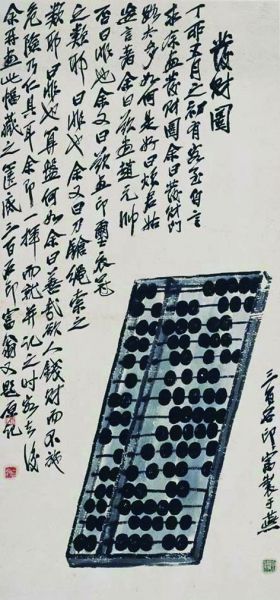 發財圖
丁卯五月之初有客至自言
求余画發財圖余曰發財門
路太多如何是好曰煩君姑
妄言著余曰欲画趙元帥
否曰非也余又曰欲画印璽衣冠
之類耶曰非也余又曰刀鎗繩索之
類耶曰非也算盤何如余曰善哉欲人錢財而不施
危險乃仁具耳余即一揮而就并記之時客去後
余再画此幅藏之篋底三百石印富翁又題原記
三百石印富于燕